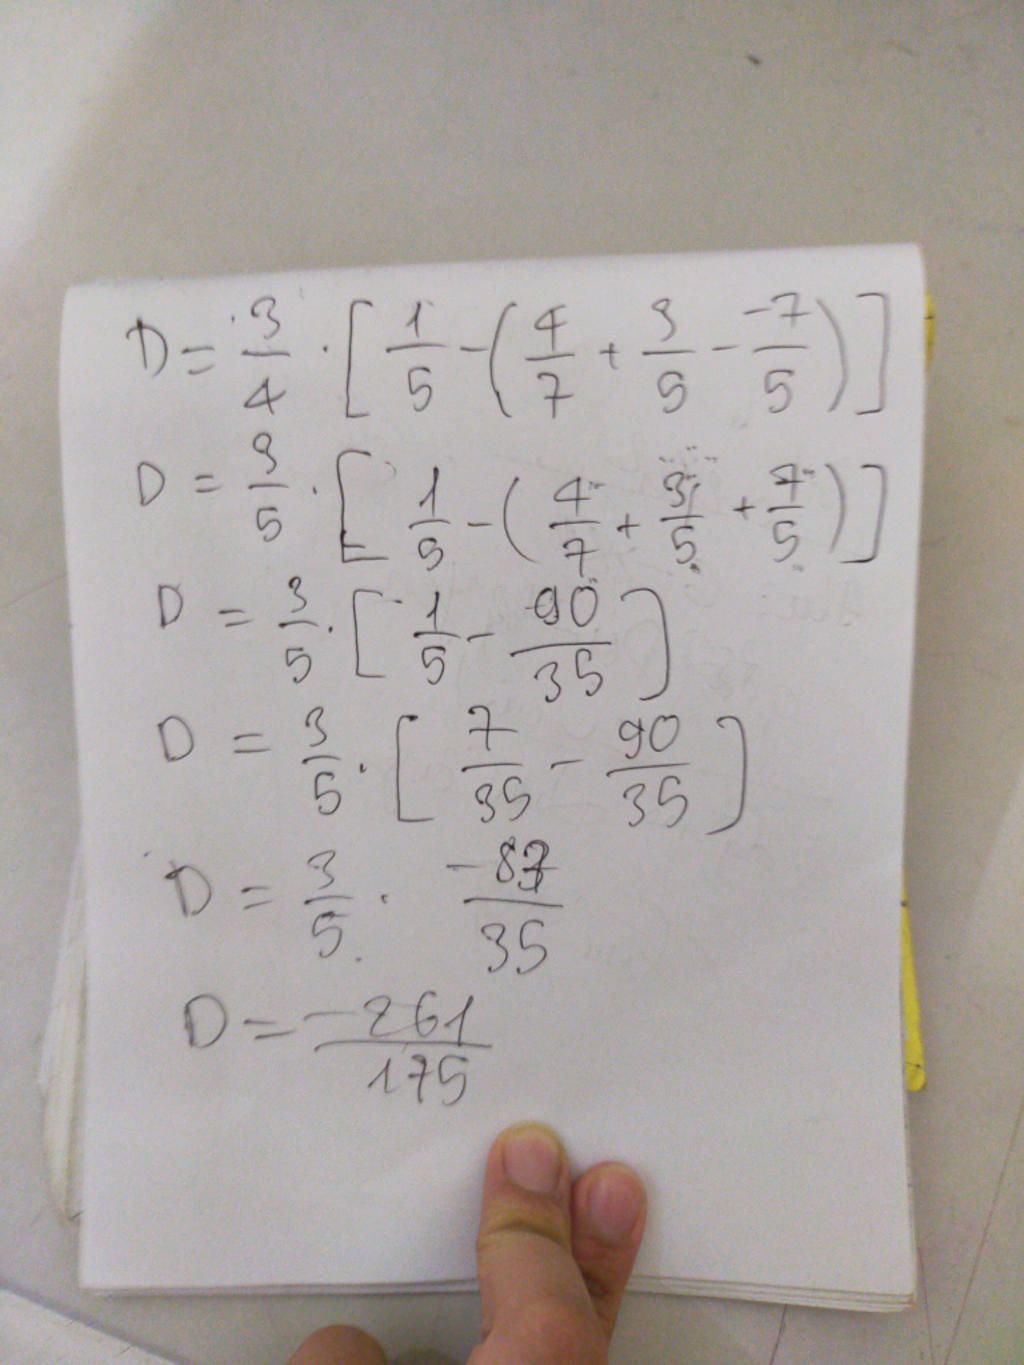 D = 3/4 · [ 1/5 - ( 4/7 + 3/5 - -7/5 ) ]
D = 3/5 · [ 1/5 - ( 4/7 + 3/5 + 7/5 ) ]
D = 3/5 · [ 1/5 - 90/35 ]
D = 3/5 · [ 7/35 - 90/35 ]
D = 3/5 · -87/35
D = -261/175